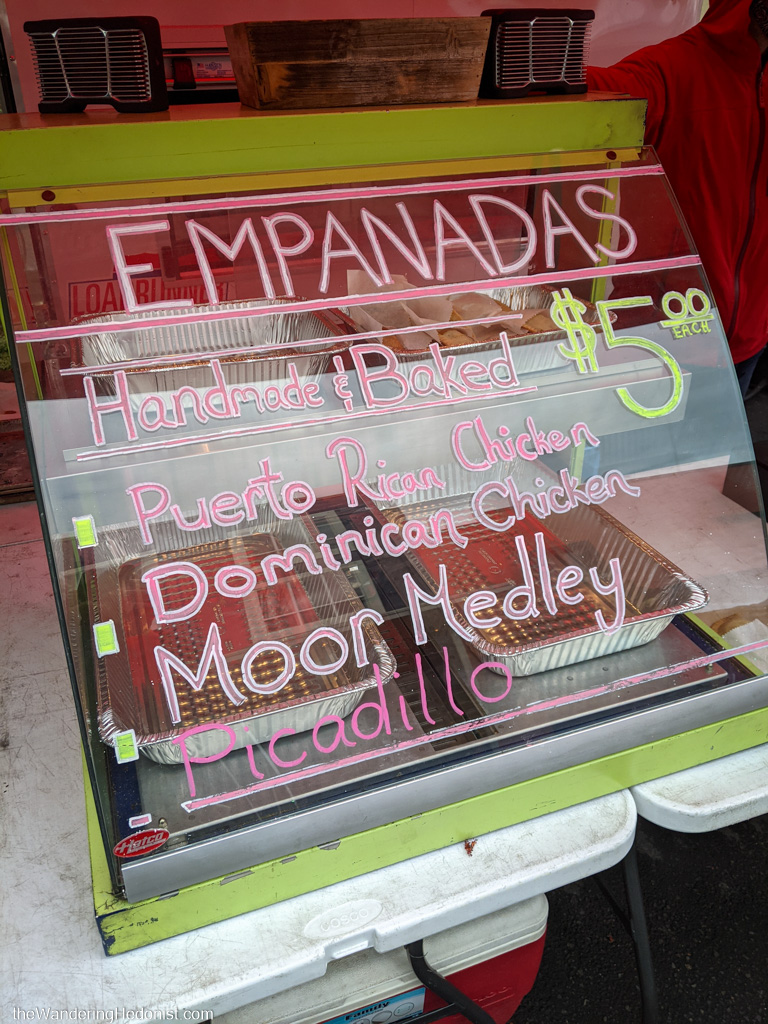 EMPANADAS
Handmade & Baked
$5.00
EACH
Puerto Rican Chicken
Dominican Chicken
Moor Medley
Picadillo
Hatco
COSCO
Family
theWanderingHedonist.com